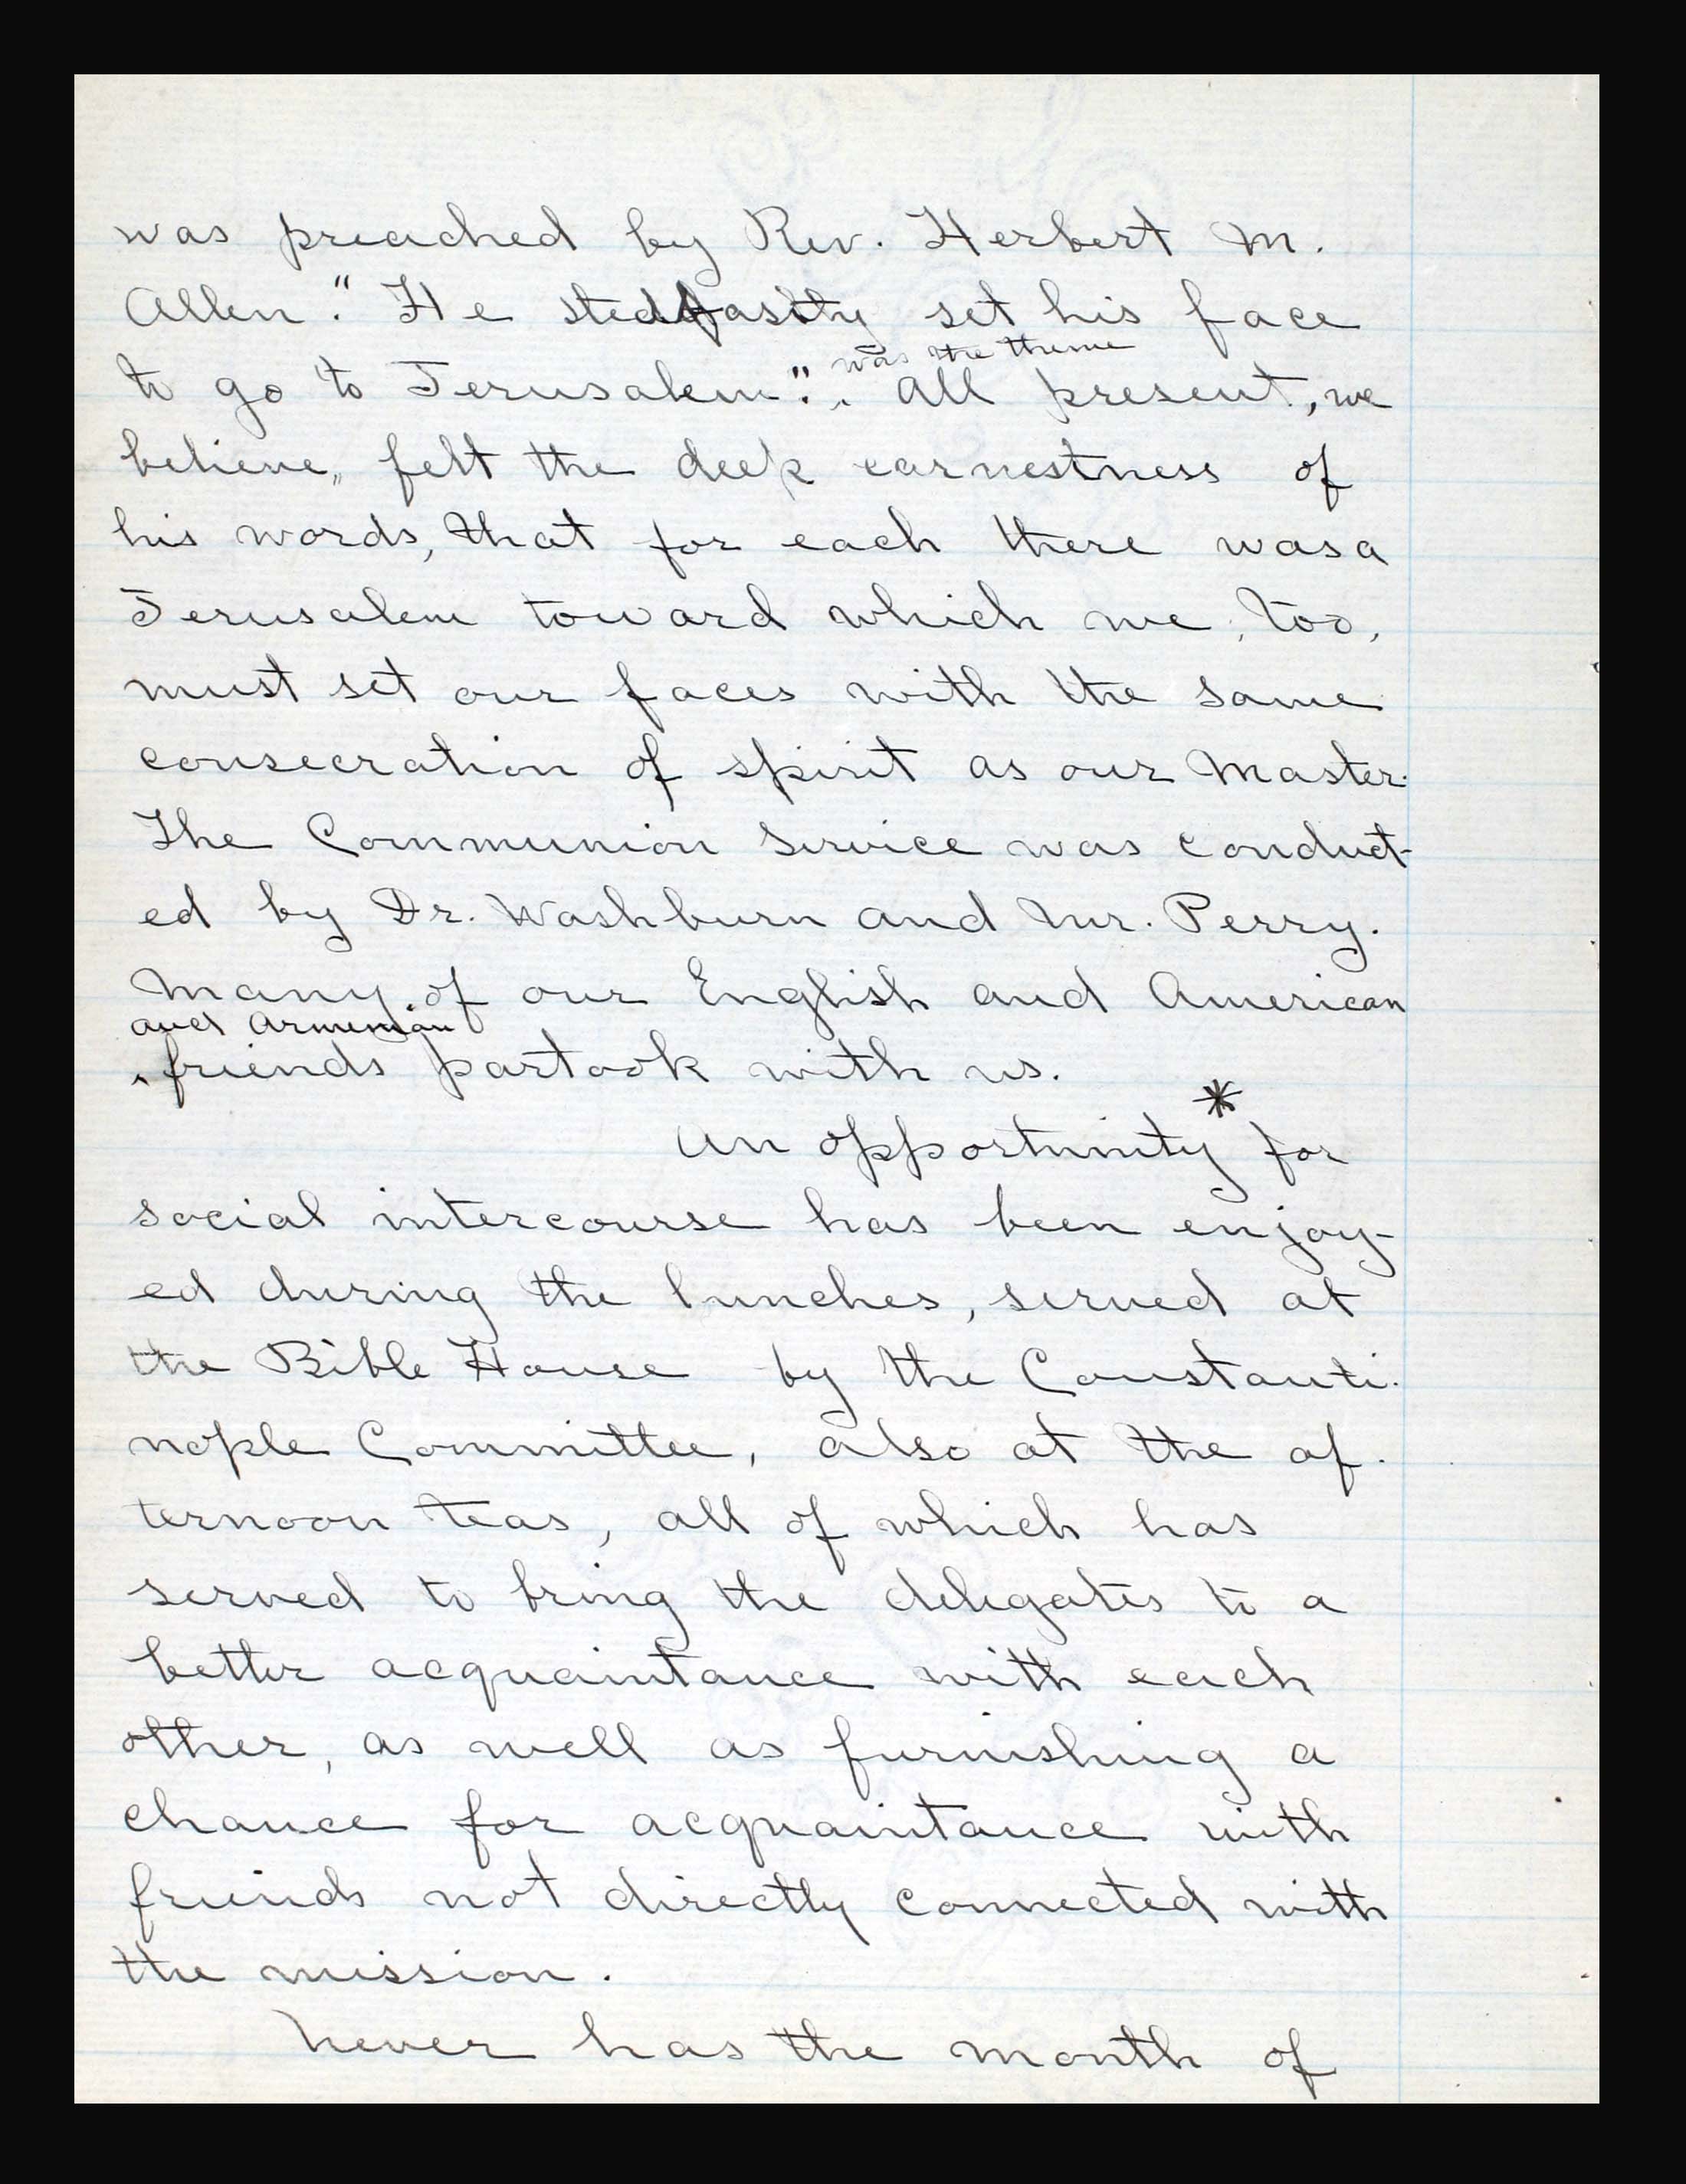 was preached by Rev. Herbert M.
Allen. "He stedfastly set his face
was the theme
to go to Jerusalem." All present, we
believe, felt the deep earnestness of
his words, that for each there was a
Jerusalem toward which we, too,
must set our faces with the same
consecration of spirit as our Master.
The Communion Service was conduct-
ed by Dr. Washburn and Mr. Perry.
Many of our English and American
and Armenian
^friends partook with us.
An opportunity* for
social intercourse has been enjoy-
ed during the lunches, served at
the Bible House by the Constanti-
nople Committee, also at the af-
ternoon teas, all of which has
served to bring the delegates to a
better acquaintance with each
other, as well as furnishing a
chance for acquaintance with
friends not directly connected with
the mission.
Never has the month of